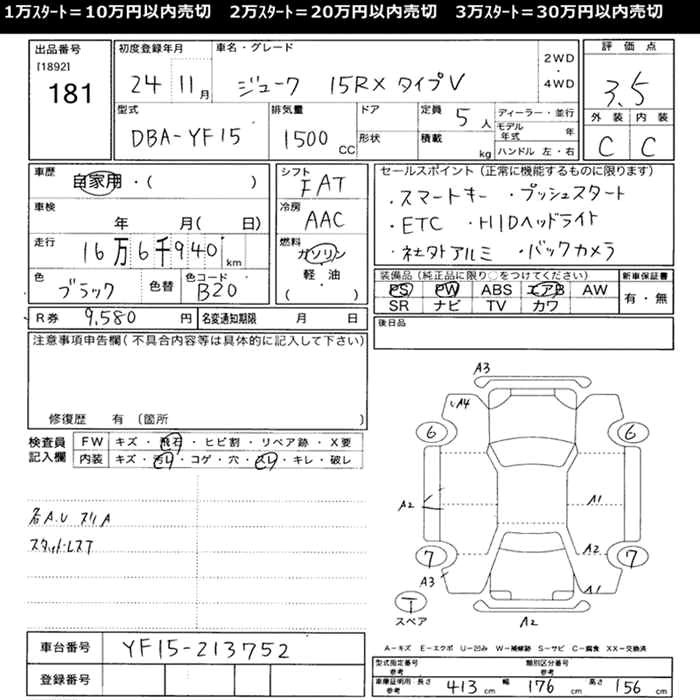 1万スタート＝10万円以内売切　2万スタート＝20万円以内売切　3万スタート＝30万円以内売切
出品番号
[1892]
181
初度登録年月
24 11月
車名・グレード
ジューク 15RX タイプV
2WD
・
4WD
評価点
3.5
外装 内装
C C
型式
DBA-YF15
排気量
1500 CC
ドア
形状
定員 5人
積載 kg
ディーラー・並行
モデル年式 年
ハンドル 左・右
車歴
自家用・( )
車検
年 月( 日)
走行
16万6千940km
色
ブラック
色替
色コード
B20
シフト
FAT
冷房
AAC
燃料
ガソリン
軽・油
( ・ )
セールスポイント (正常に機能するものに限ります)
・スマートキー ・プッシュスタート
・ETC ・HIDヘッドライト
・社外アルミ ・バックカメラ
装備品 (純正品に限り○をつけてください)
PS PW ABS エアB AW
SR ナビ TV カワ
新車保証書
有・無
R券 9,580 円
名変通知期限 月 日
後日品
注意事項申告欄(不具合内容等は具体的に記入して下さい)
修復歴 有 (箇所 )
検査員記入欄
FW キズ・飛石・ヒビ割・リペア跡・X要
内装 キズ・汚レ・コゲ・穴・スレ・キレ・破レ
各A.U スリA
スタットレスT
A3
A4
6 6
A2 A1
7 A2 7
A3 A1
T
スペア
A2
車台番号 YF15-213752
登録番号
A－キズ E－エクボ U－凹み W－補修跡 S－サビ C－腐食 XX－交換済
型式指定番号
参考
類別区分番号
参考
車庫証明用
参考
長さ 413 cm 幅 176 cm 高さ 156 cm